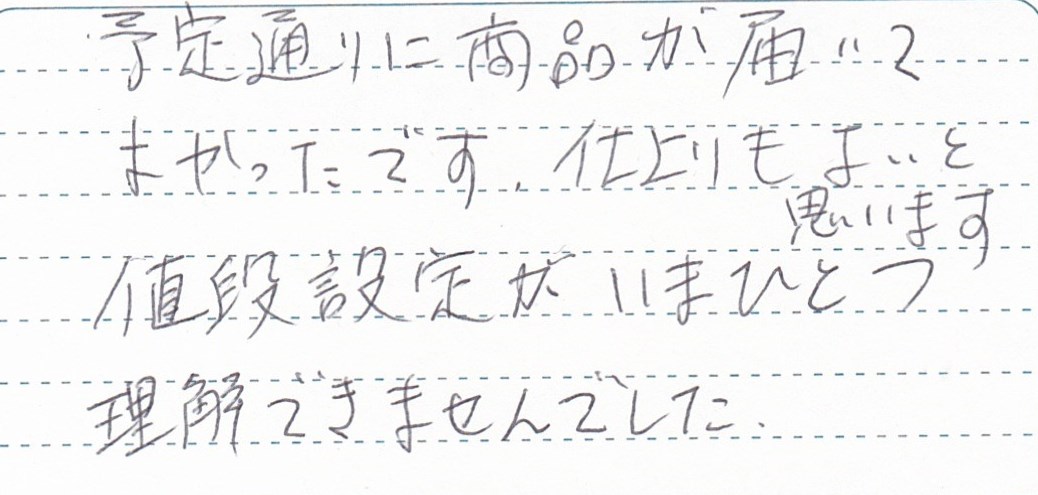 予定通りに商品が届いて
よかったです。仕上りもよいと
思います
値段設定がいまひとつ
理解できませんでした。